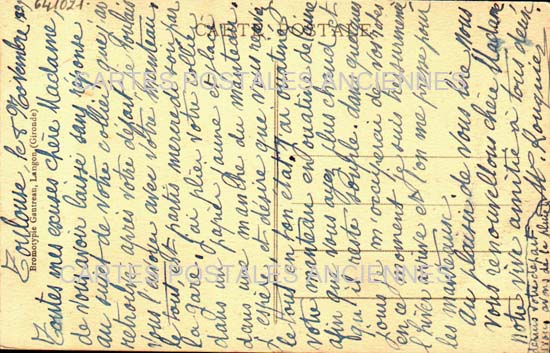 641021
CARTE POSTALE
Bromotypie Gautreau, Langon (Gironde)
CARTES POSTALES ANCIENNES
CARTES POSTALES ANCIENNES
Toulouse, le 8 Novembre
Toutes mes excuses chère Madame
de vous avoir laissé sans réponse
au sujet de votre collier que j'ai
retrouvé après votre départ. Je voulais
vous l'envoyer avec votre manteau
le tout est parti mercredi soir par
la gare. J'ai plier votre collier
dans un papier jaune et placé
dans une manche du manteau.
J'espère et désire que vous receviez
le tous en bon état. J'ai ouatiné
votre manteau en ouatine de laine
afin que vous ayez plus chaud et
qu'il reste souple. dans quelques
jours je m'occuperai de vos robes
en ce moment je suis bien surmené
l'hiver arrive et l'on me presse pour
les manteaux.
Au plaisir de vous lire nous
vous renouvellons chère Madame
notre vive amitié à tous deux.